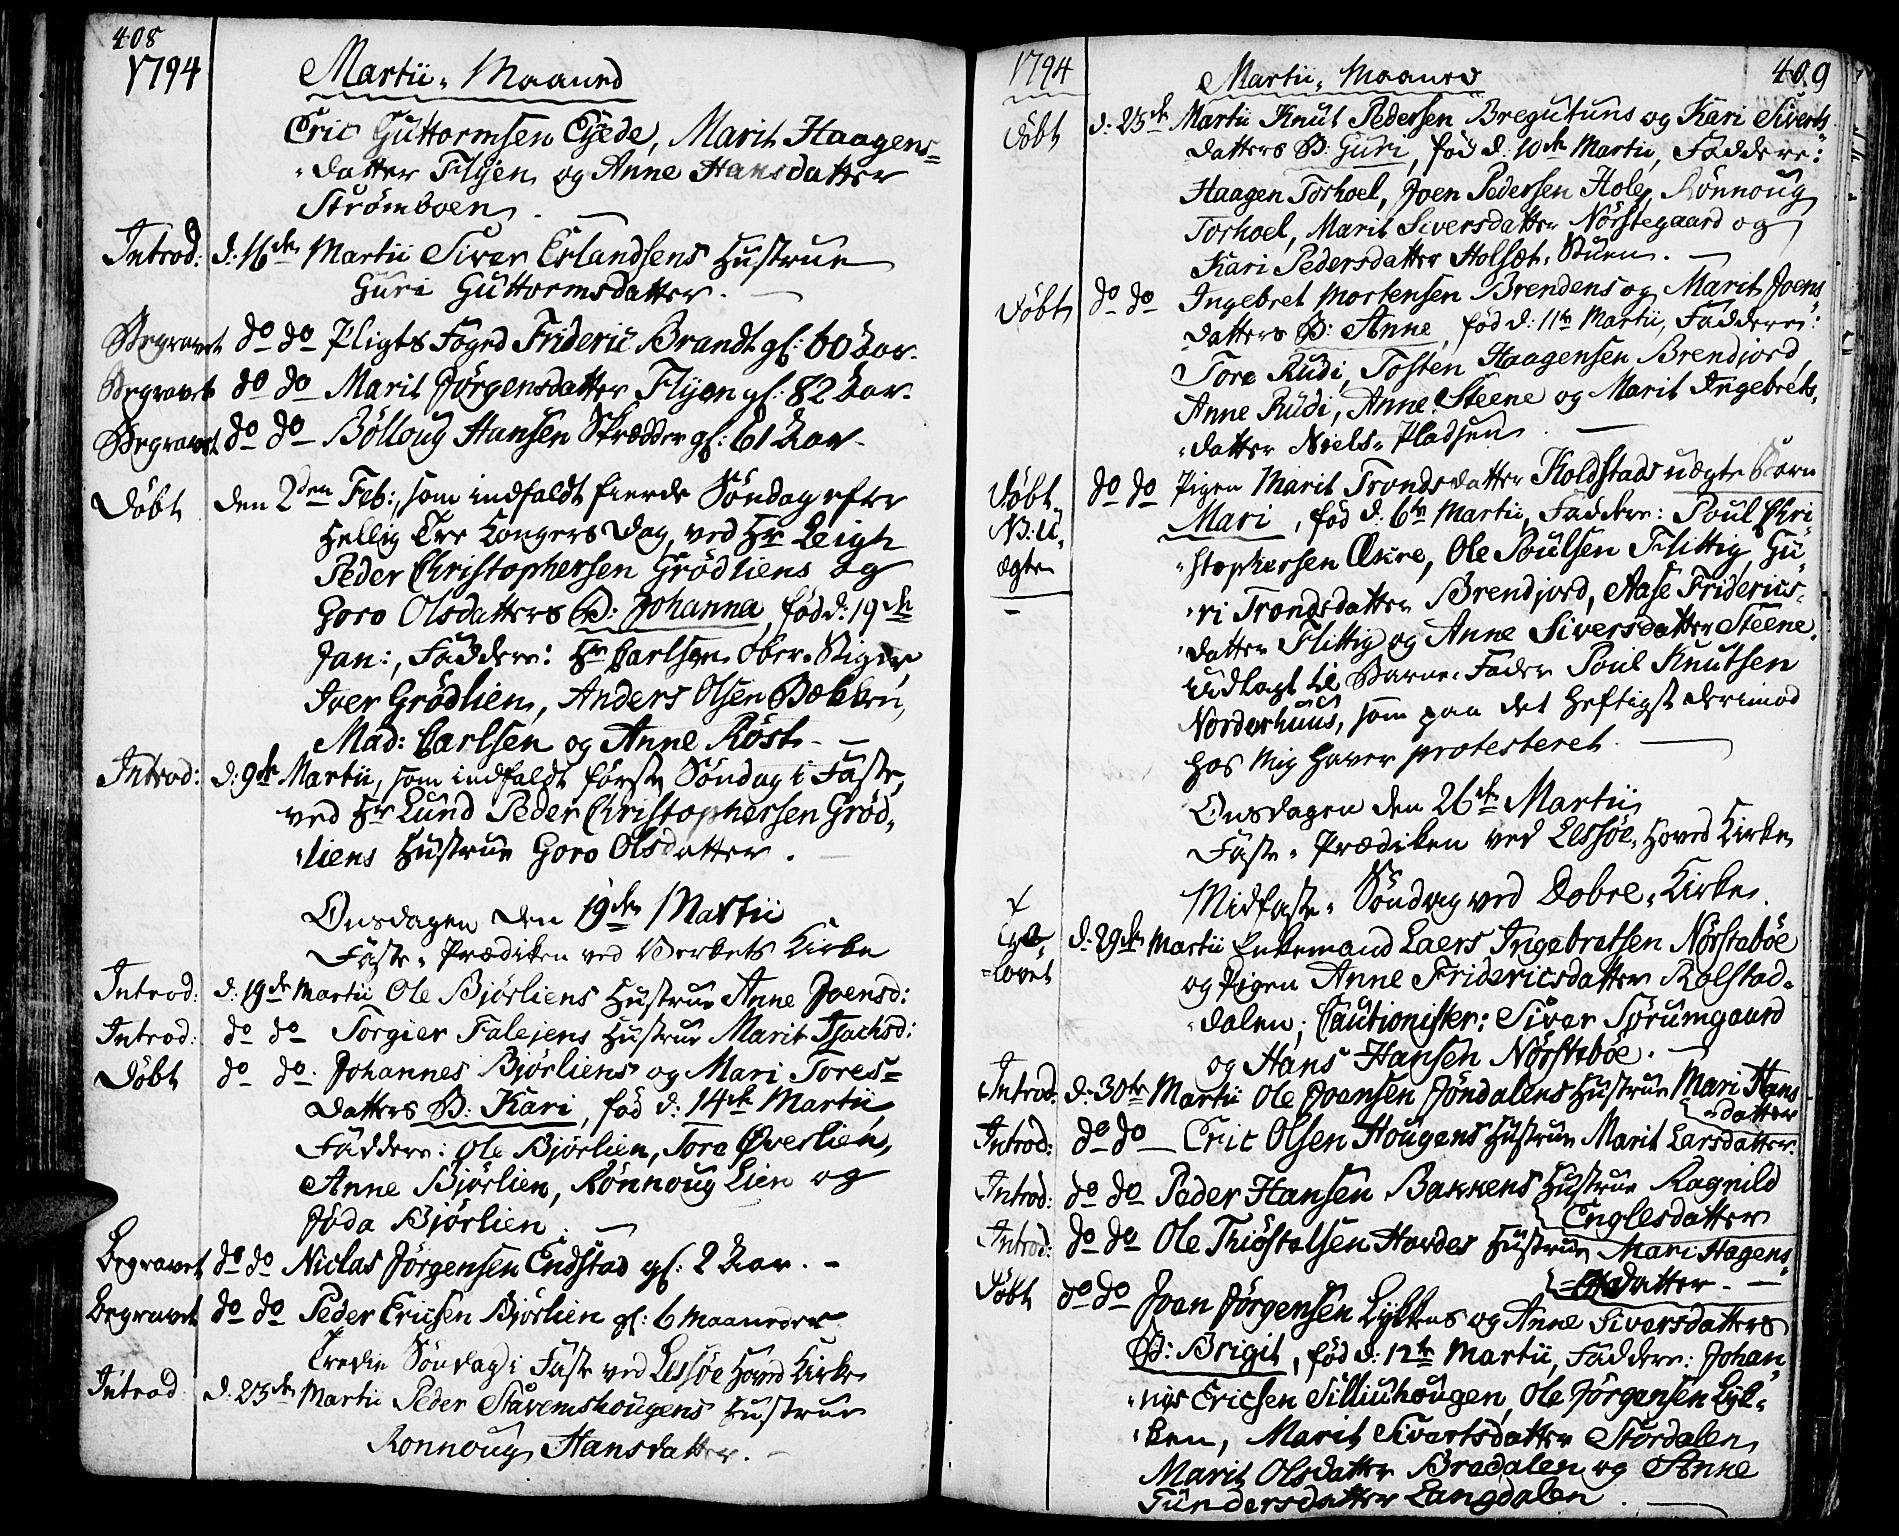 408
1794
Martii, Maaned
Eric Guttormsen Eyede, Marit Haagens=
datter Flyen og Anne Hansdatter
Strømboen.
Introd: d: 16de Martii Siver Erlandsens Hustrue
Guri Guttormsdatter.
Begravet do do Pligts Foged Frideric Brandt gl: 60 Aar.
Begravet do do Marit Jørgensdatter Flyen gl: 82 Aar.
Begravet do do Bølloug Hansen Skrædder gl: 61 Aar
Døbt den 2den Feb:, som indfaldt fierde Søndag efter
Hellig Tre Kongers Dag, ved Hr Leigh
Peder Christophersen Grødliens og
Goro Olsdatters B: Johanna, fød d: 19de
Jan:, Faddere: Hr Carlsen Ober-Stiger,
Iver Grødlien, Anders Olsen Bækken,
Mad: Carlsen og Anne Røst.
Introd: d: 9de Martii, som indfaldt første Søndag i Faste,
ved Hr Lund Peder Christophersen Grød,
liens Hustrue Goro Olsdatter.
Onsdagen den 19den Martii
Faste, Prædiken ved Verkets Kirke
Introd: d: 19de Martii Ole Bjørliens Hustrue Anne Joensd:
Introd: do do Torgier Talejens Hustrue Marit Isachsd:
Døbt do do Johannes Bjørliens og Mari Tores=
datters B: Kari, fød d: 14de Martii
Faddere: Ole Bjørlien, Tore Øverlien,
Anne Bjørlien, Rønnoug Lien og
Jøda Bjørlien.
Begravet do do Niclas Jørgensen Endstad gl: 2 Aar.
Begravet do do Peder Ericsen Bjørlien gl: 6 Maaneder
Tredie Søndag i Faste ved Lessøe Hoved Kirke
Introd d: 23de Martii Peder Stavemshougens Hustrue
Ronnoug Hansdatter.
1794
Martii, Maaned
409
Døbt d: 23de Martii Knut Pedersen Bregutuns og Kari Siverts
datters B: Guri, fød d. 10de Martii, Faddere:
Haagen Torhoel, Joen Pedersen Hole, Rønnoug
Torhoel, Marit Siversdatter Nørstegaard og
Kari Pedersdatter Holsæt, Stuen.
Døbt do do Ingebret Mortensen Brendens og Marit Joens
datters B: Anne, fød d: 11te Martii, Faddere:
Tore Rudi, Tosten Haagensen Brendjord
Anne Rudi, Anne Steene og Marit Ingebrets,
datter Niels, Pladsen
Døbt do do Pigen Marit Tronds datter Koldstads uægte Barn
N.B: U,
Mari, fød d: 6te Martii, Faddere: Poul Chri
ægte
stophersen Økre, Ole Poulsen Flittig, Gu
ri Trondsdatter Brendjord, Aase Friderics-
datter Flittig og Anne Siversdatter Steene.
Udlagt til Barne-Fader Poul Knutsen
Norderhuus, som paa det heftigst derimod
hos mig haver protesteret.
Onsdagen den 26de Martii
Faste, Prædiken ved Lessøe, Hoved Kirke
Midfaste, Søndag ved Dobre, Kirke.
x
Tro-
lovet d: 29de Martii Enkemand Laers Ingebretsen Nørstebøe
og Pigen Anne Fridericsdatter Rolstad-
dalen, Cautionister: Siver Sørumgaard
og Hans Hansen Nørstebøe.
Introd: d: 30te Martii Ole Joensen Jøndalens Hustrue Mari Hans
datter
Introd: do do Eric Olsen Hougens Hustrue Marit Larsdatter.
Introd: do do Peder Hansen Bakkens Hustrue Ragnild
Englesdatter
Introd: do do Ole Thiøstelsen Hordes Hustrue Mari Hagens
datter.
Døbt do do Joen Jørgensen Lykkens og Anne Siversdatters
B: Brigit, fød d: 12te Martii, Faddere: Johan
nes Ericsen Silliuhougen, Ole Jørgensen Lyk-
ken, Marit Sivertsdatter Stordalen,
Marit Olsdatter Bredalen og Anne
Gundersdatter Langdalen.